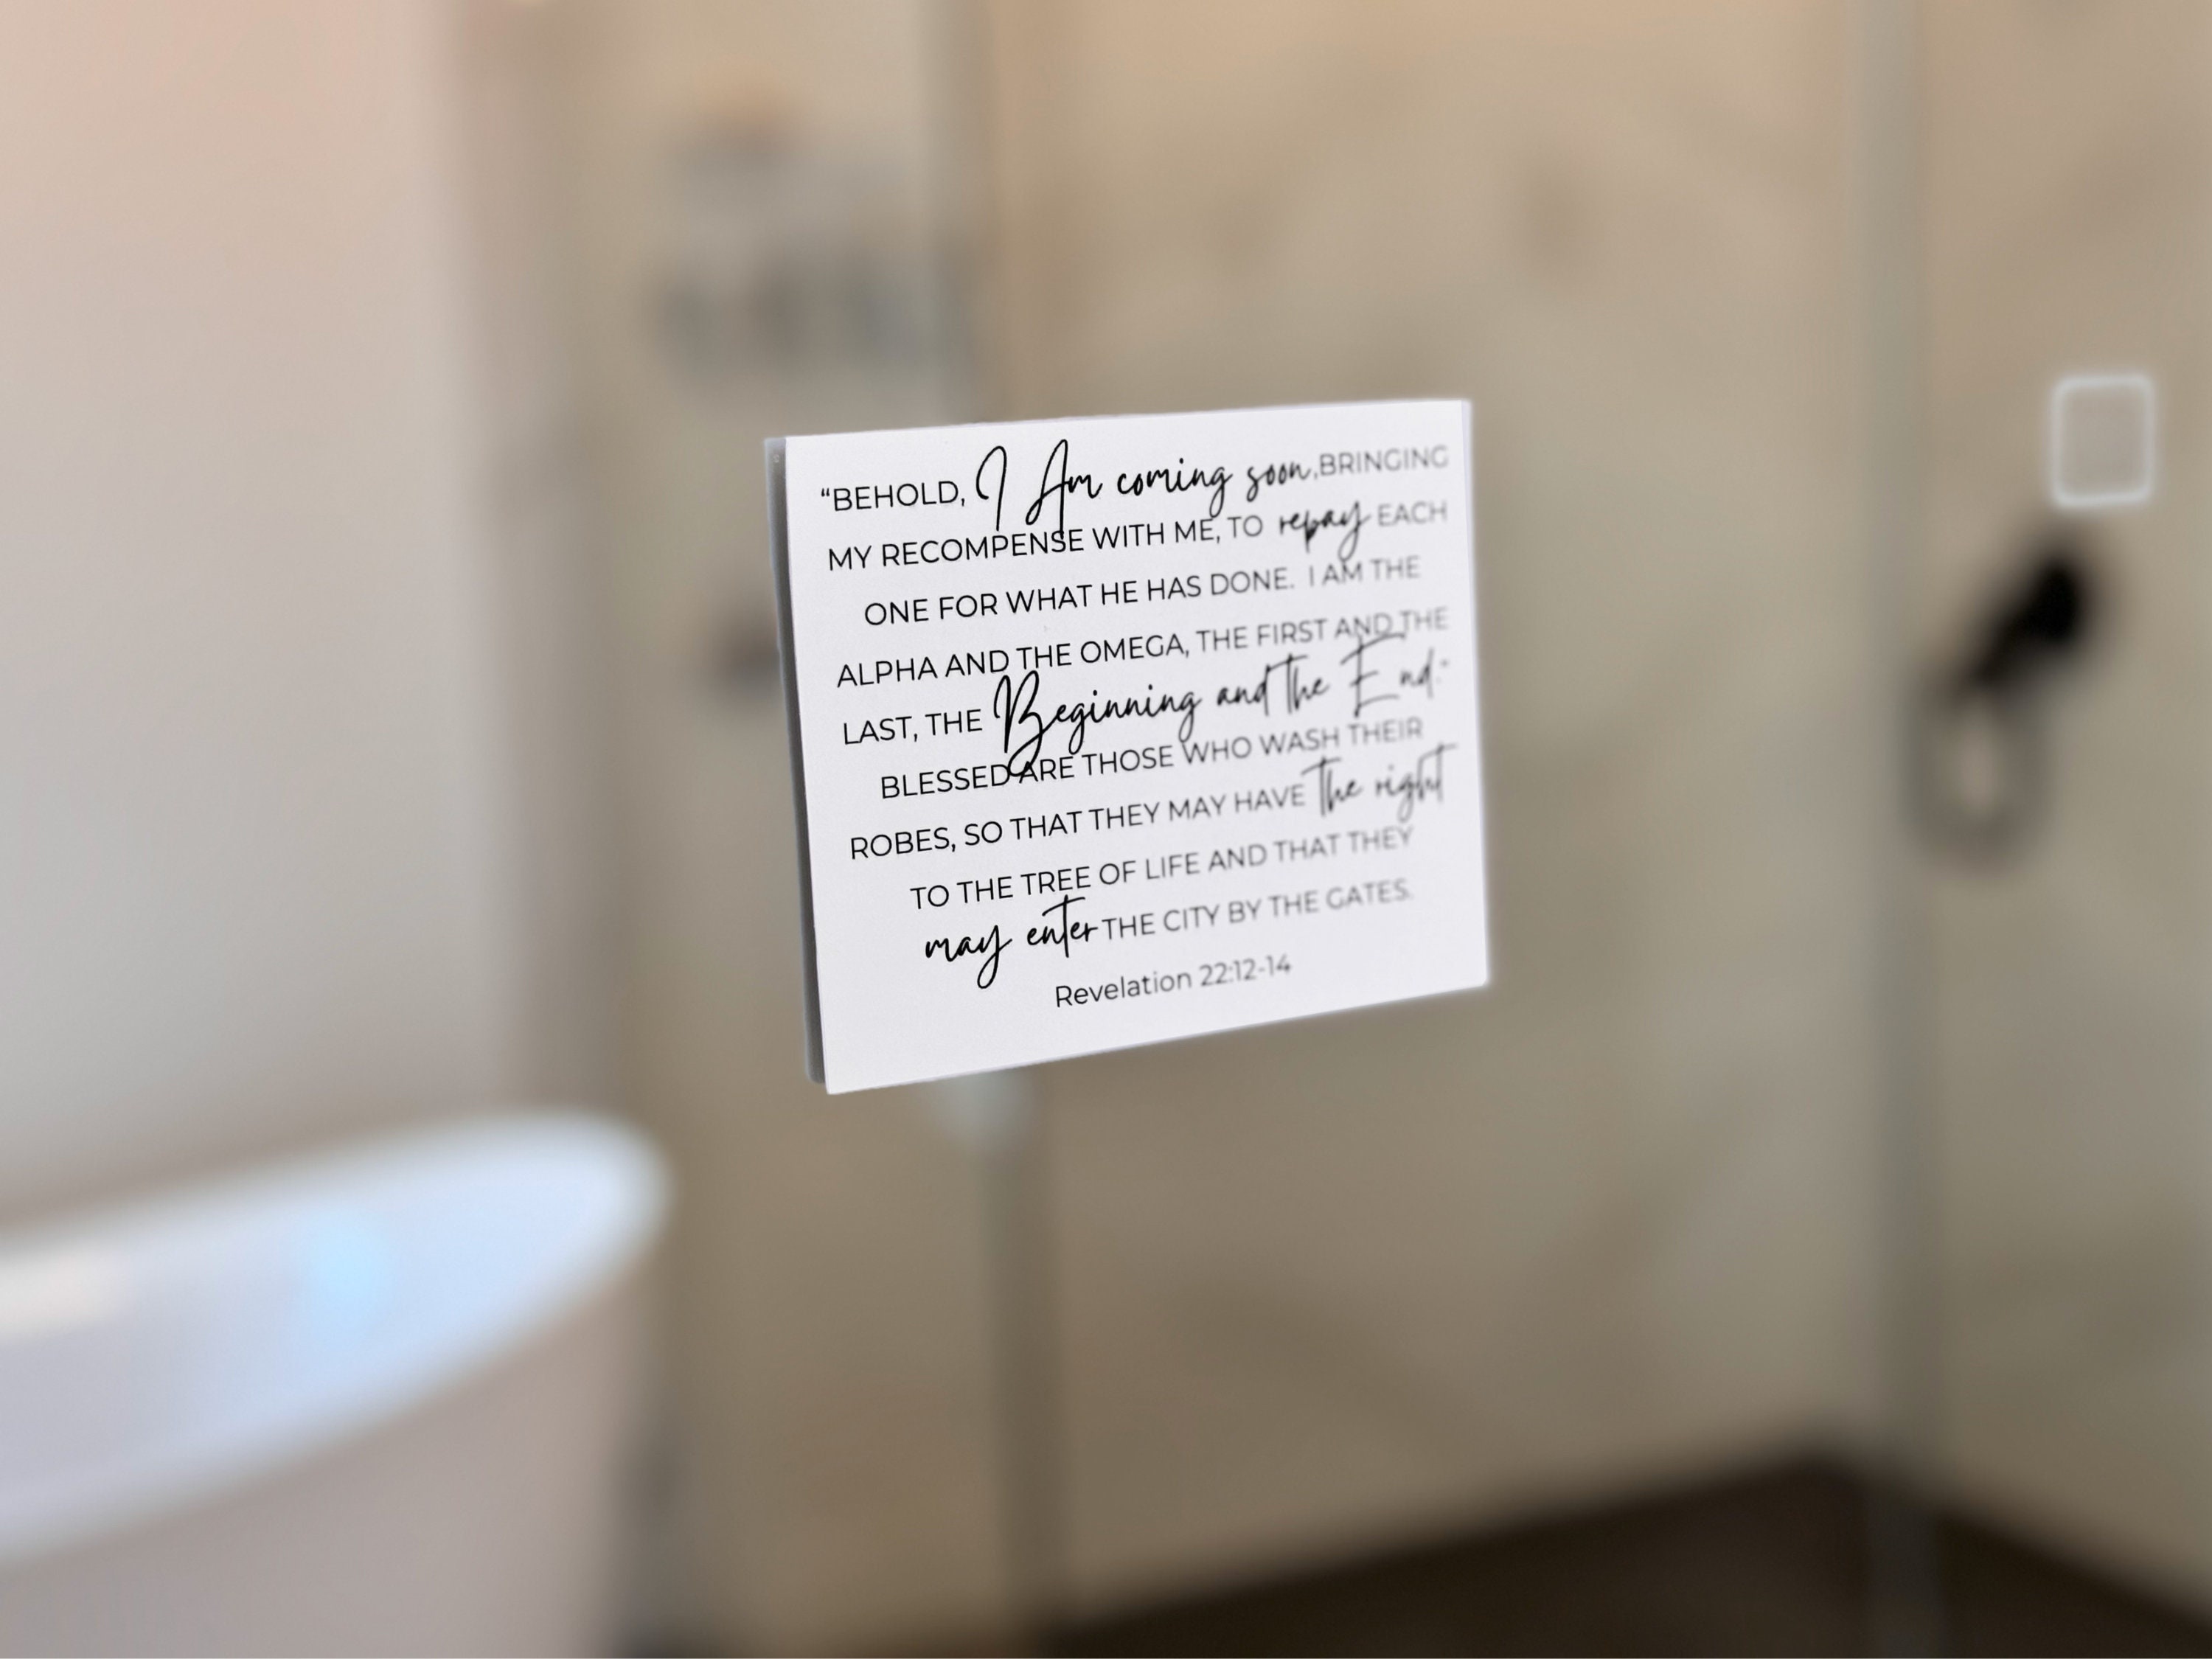 “BEHOLD, I Am coming soon, BRINGING
MY RECOMPENSE WITH ME, TO repay EACH
ONE FOR WHAT HE HAS DONE. I AM THE
ALPHA AND THE OMEGA, THE FIRST AND THE
LAST, THE Beginning and the End.”
BLESSED ARE THOSE WHO WASH THEIR
ROBES, SO THAT THEY MAY HAVE the right
TO THE TREE OF LIFE AND THAT THEY
may enter THE CITY BY THE GATES.
Revelation 22:12-14